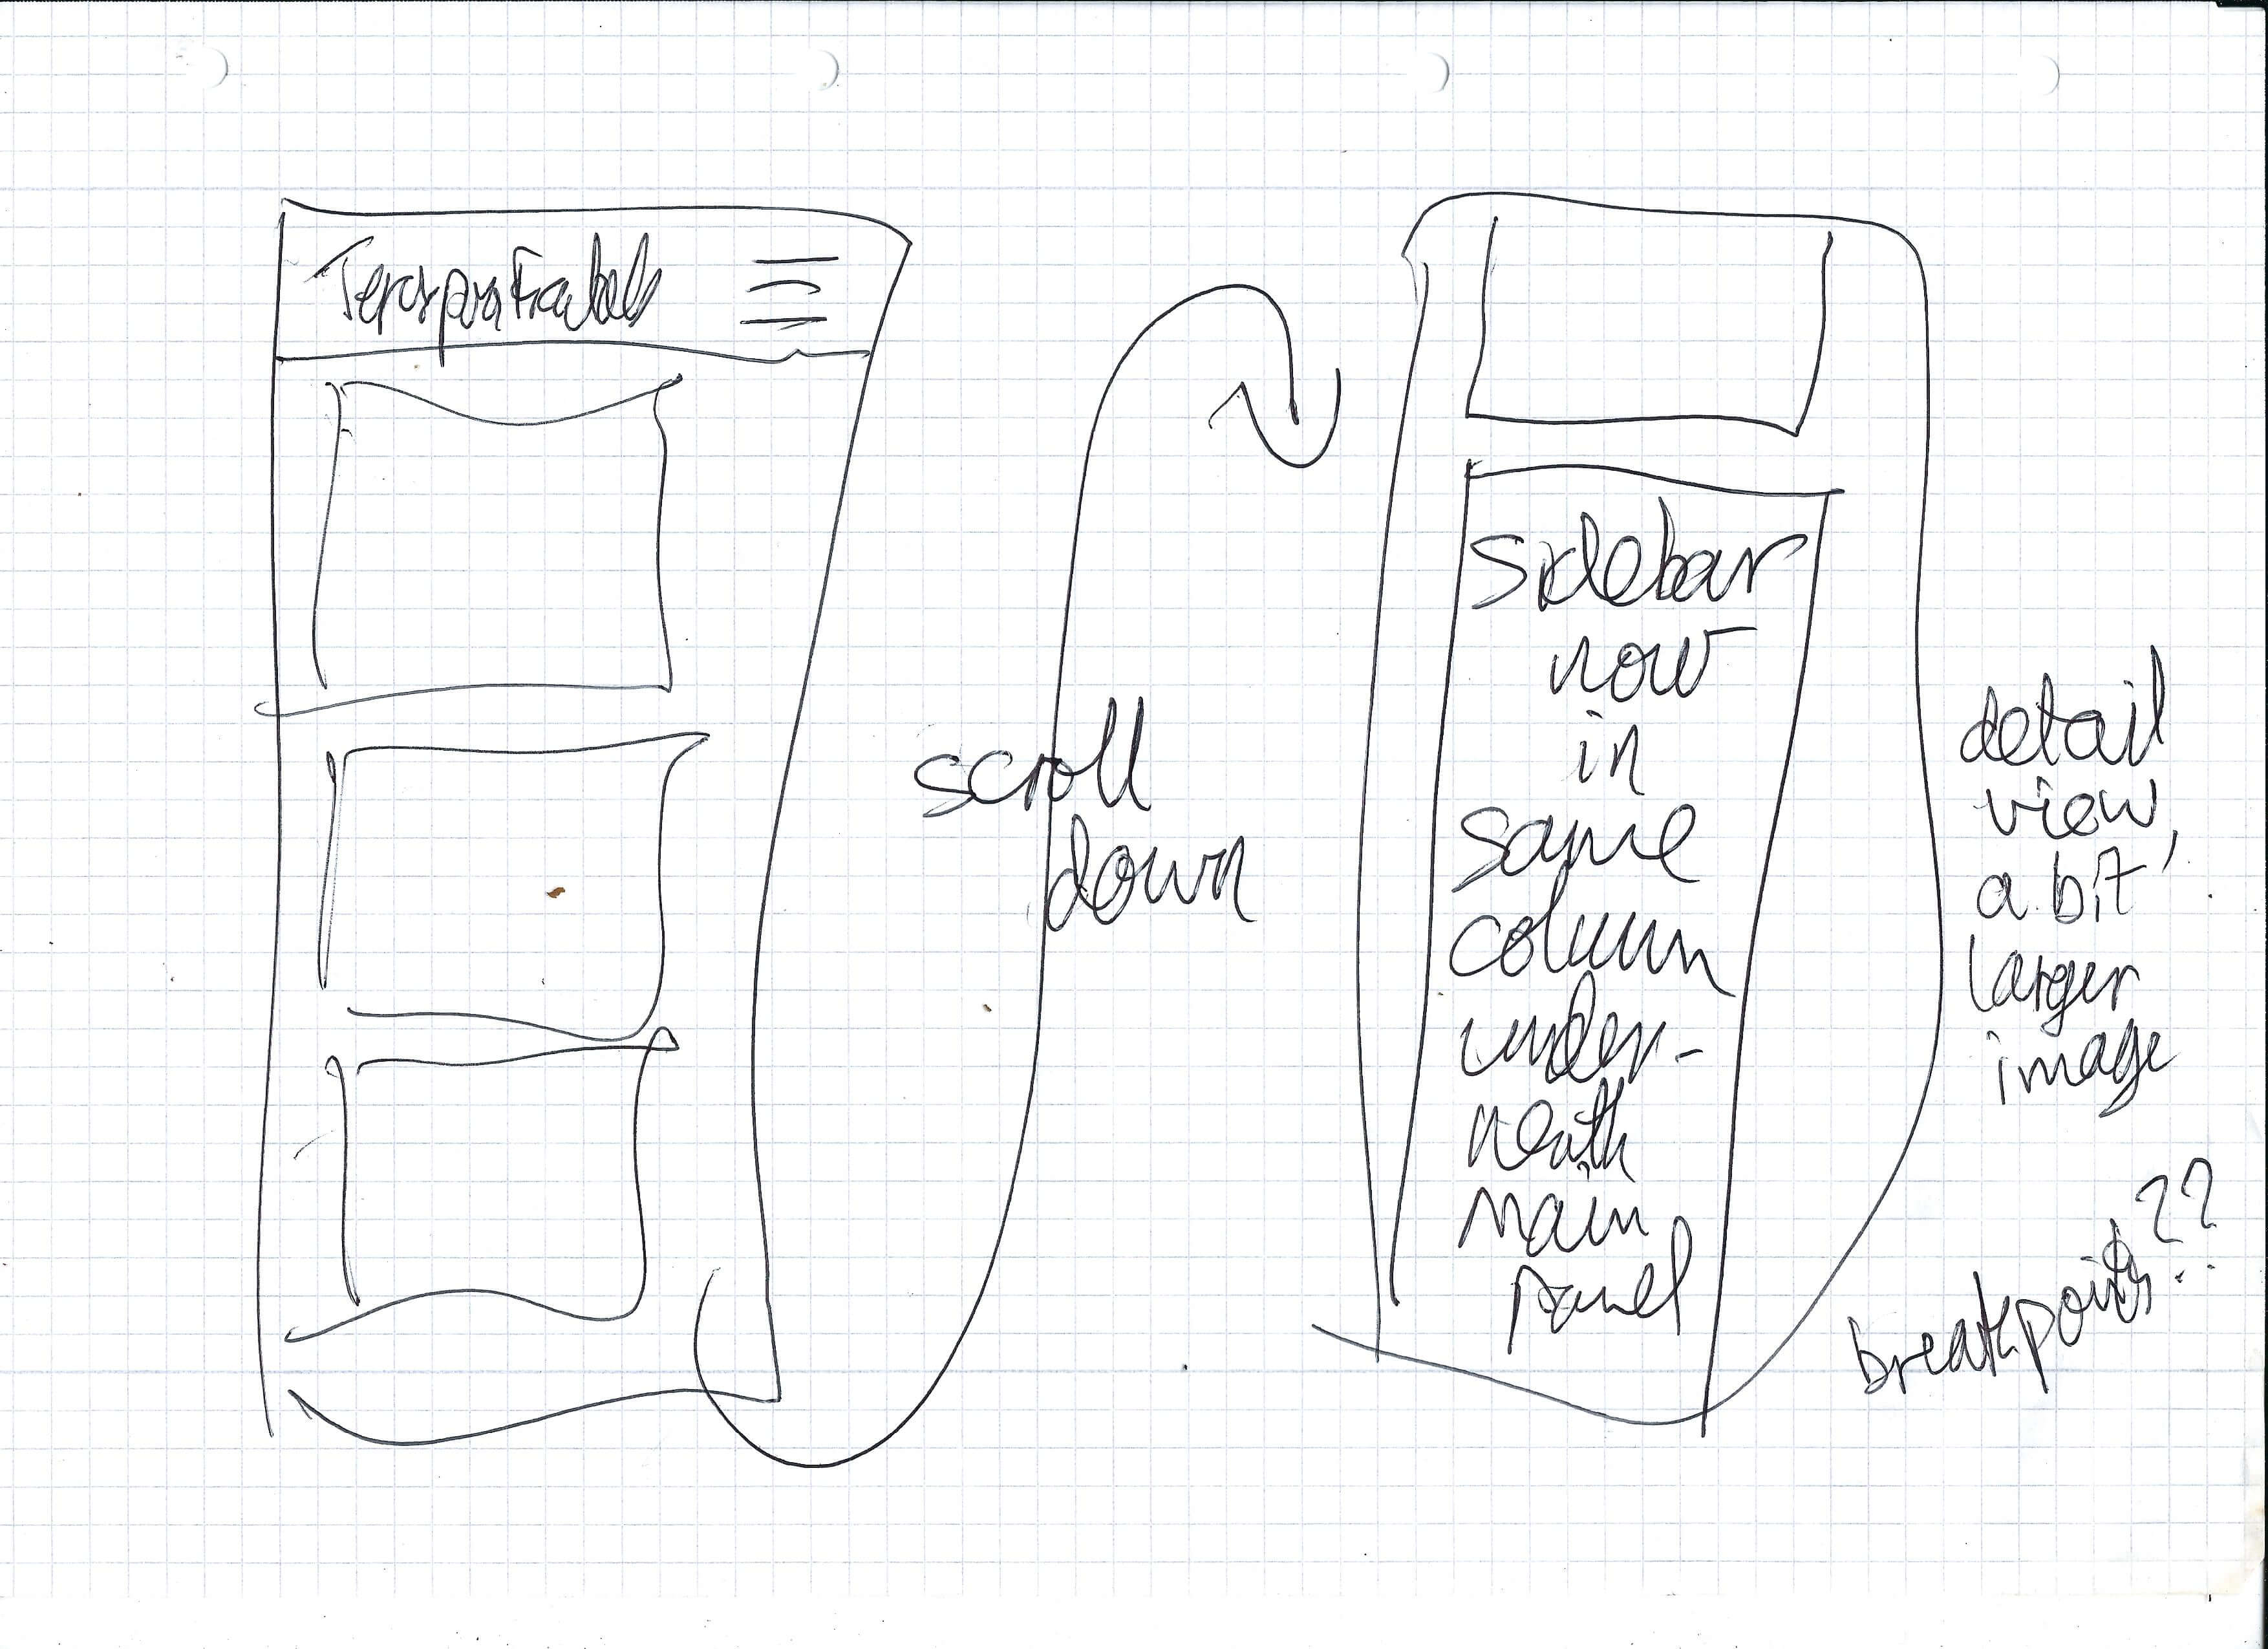 scroll
down
sidebar
now
in
same
column
under-
neath
main
panel
detail
view,
a bit
larger
image
breakpoints??